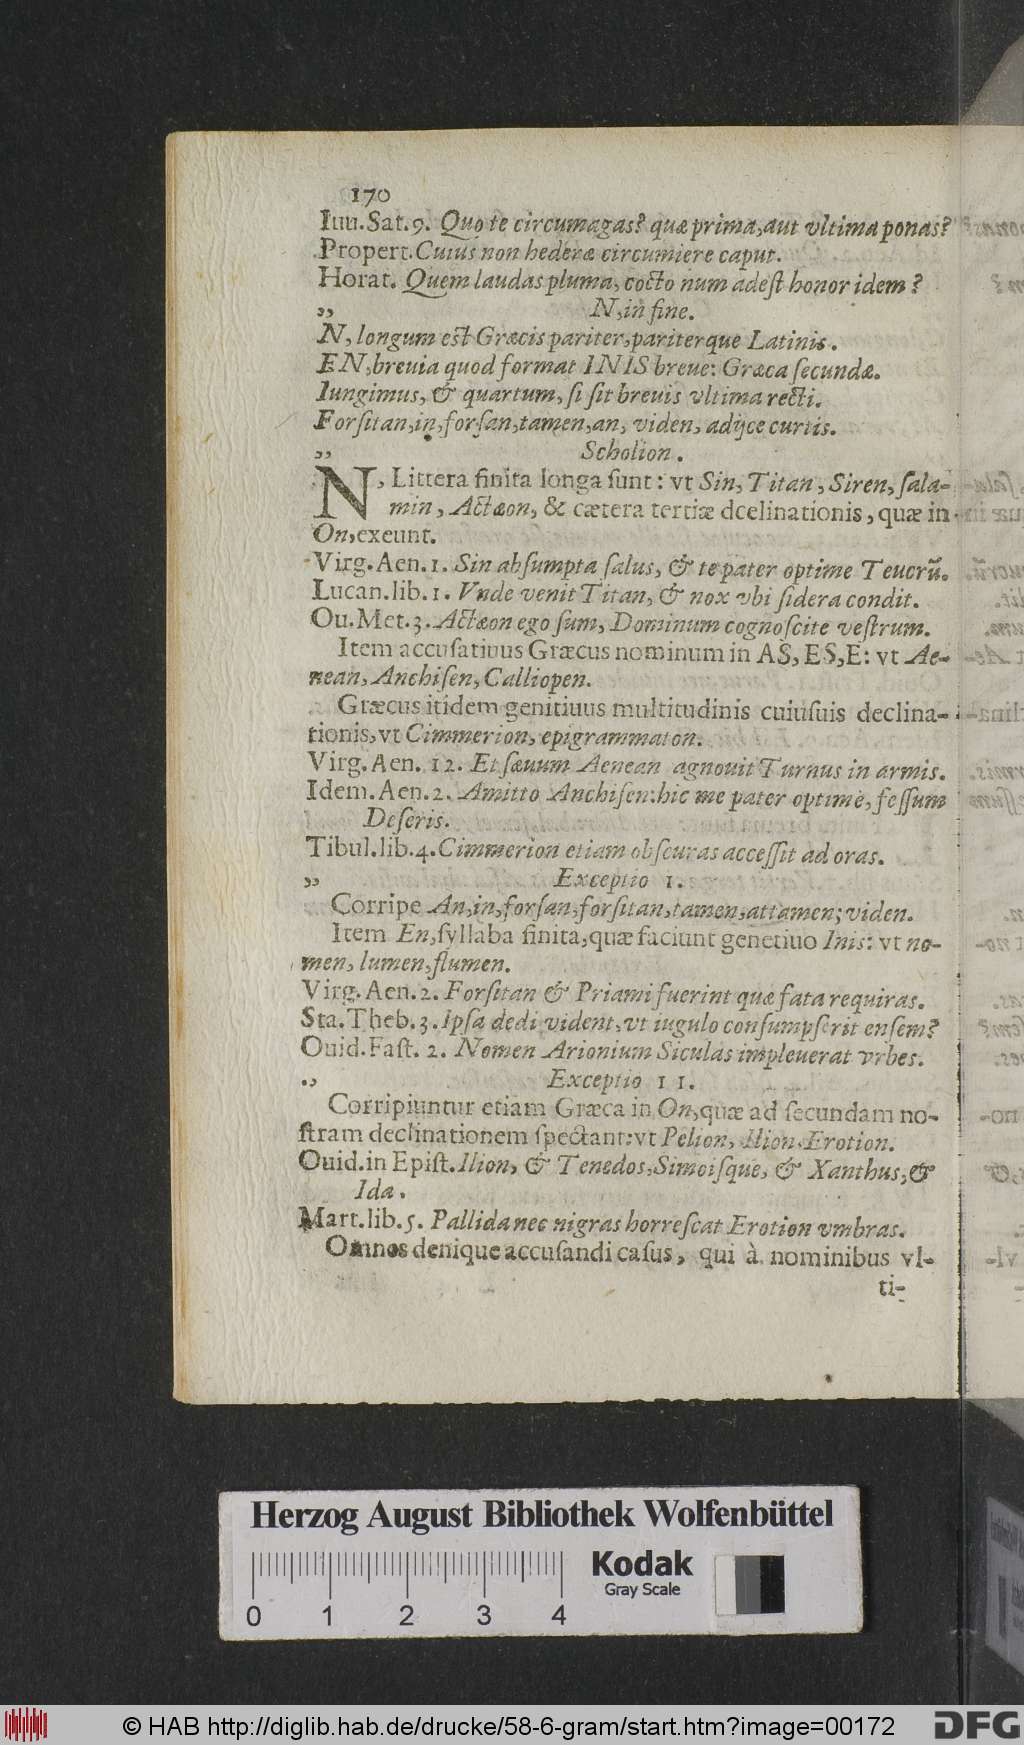 170
Iuu. Sat. 9. Quo te circumagas? quæ prima, aut vltima ponas?
Propert. Cuius non hederæ circumiere caput.
Horat. Quem laudas pluma, cocto num adeſt honor idem?
„ N, in fine.
N, longum est Græcis pariter, pariterque Latinis.
EN, brevia quod format INIS breue: Græca ſecundæ.
Iungimus, & quartum, ſi ſit brevis vltima recti.
Forſitan, in, forſan, tamen, an, viden, adijce curtis.
„ Scholion.
N, Littera finita longa ſunt: vt Sin, Titan, Siren, ſala-
min, Actæon, & cætera tertiæ dcelinationis, quæ in
On, exeunt.
Virg. Aen. 1. Sin abſumpta ſalus, & te pater optime Teucrũ.
Lucan. lib. 1. Vnde venit Titan, & nox vbi ſidera condit.
Ou. Met. 3. Actæon ego ſum, Dominum cognoſcite veſtrum.
Item accuſatiuus Græcus nominum in AS, ES, E: vt Ae-
nean, Anchiſen, Calliopen.
Græcus itidem genitiuus multitudinis cuiuſuis declina-
tionis, vt Cimmerion, epigrammaton.
Virg. Aen. 12. Et ſæuum Aenean agnouit Turnus in armis.
Idem. Aen. 2. Amitto Anchiſen: hic me pater optime, feſſum
Deſeris.
Tibul. lib. 4. Cimmerion etiam obſcuras acceſſit ad oras.
„ Exceptio 1.
Corripe An, in, forſan, forſitan, tamen, attamen; viden.
Item En, ſyllaba finita, quæ faciunt genetiuo Inis: vt no-
men, lumen, flumen.
Virg. Aen. 2. Forſitan & Priami fuerint quæ fata requiras.
Sta. Theb. 3. Ipſa dedi vident, vt iugulo conſumpſerit enſem?
Ouid. Faſt. 2. Nomen Arionium Siculas impleuerat vrbes.
„ Exceptio 11.
Corripiuntur etiam Græca in On, quæ ad ſecundam no-
ſtram declinationem ſpectant: vt Pelion, Ilion, Erotion.
Ouid. in Epiſt. Ilion, & Tenedos, Simoiſque, & Xanthus, &
Ida.
Mart. lib. 5. Pallida nec nigras horreſcat Erotion vmbras.
Omnes denique accuſandi caſus, qui à nominibus vl-
ti-
Herzog August Bibliothek Wolfenbüttel
Kodak
Gray Scale
0 1 2 3 4
© HAB http://diglib.hab.de/drucke/58-6-gram/start.htm?image=00172
DFG